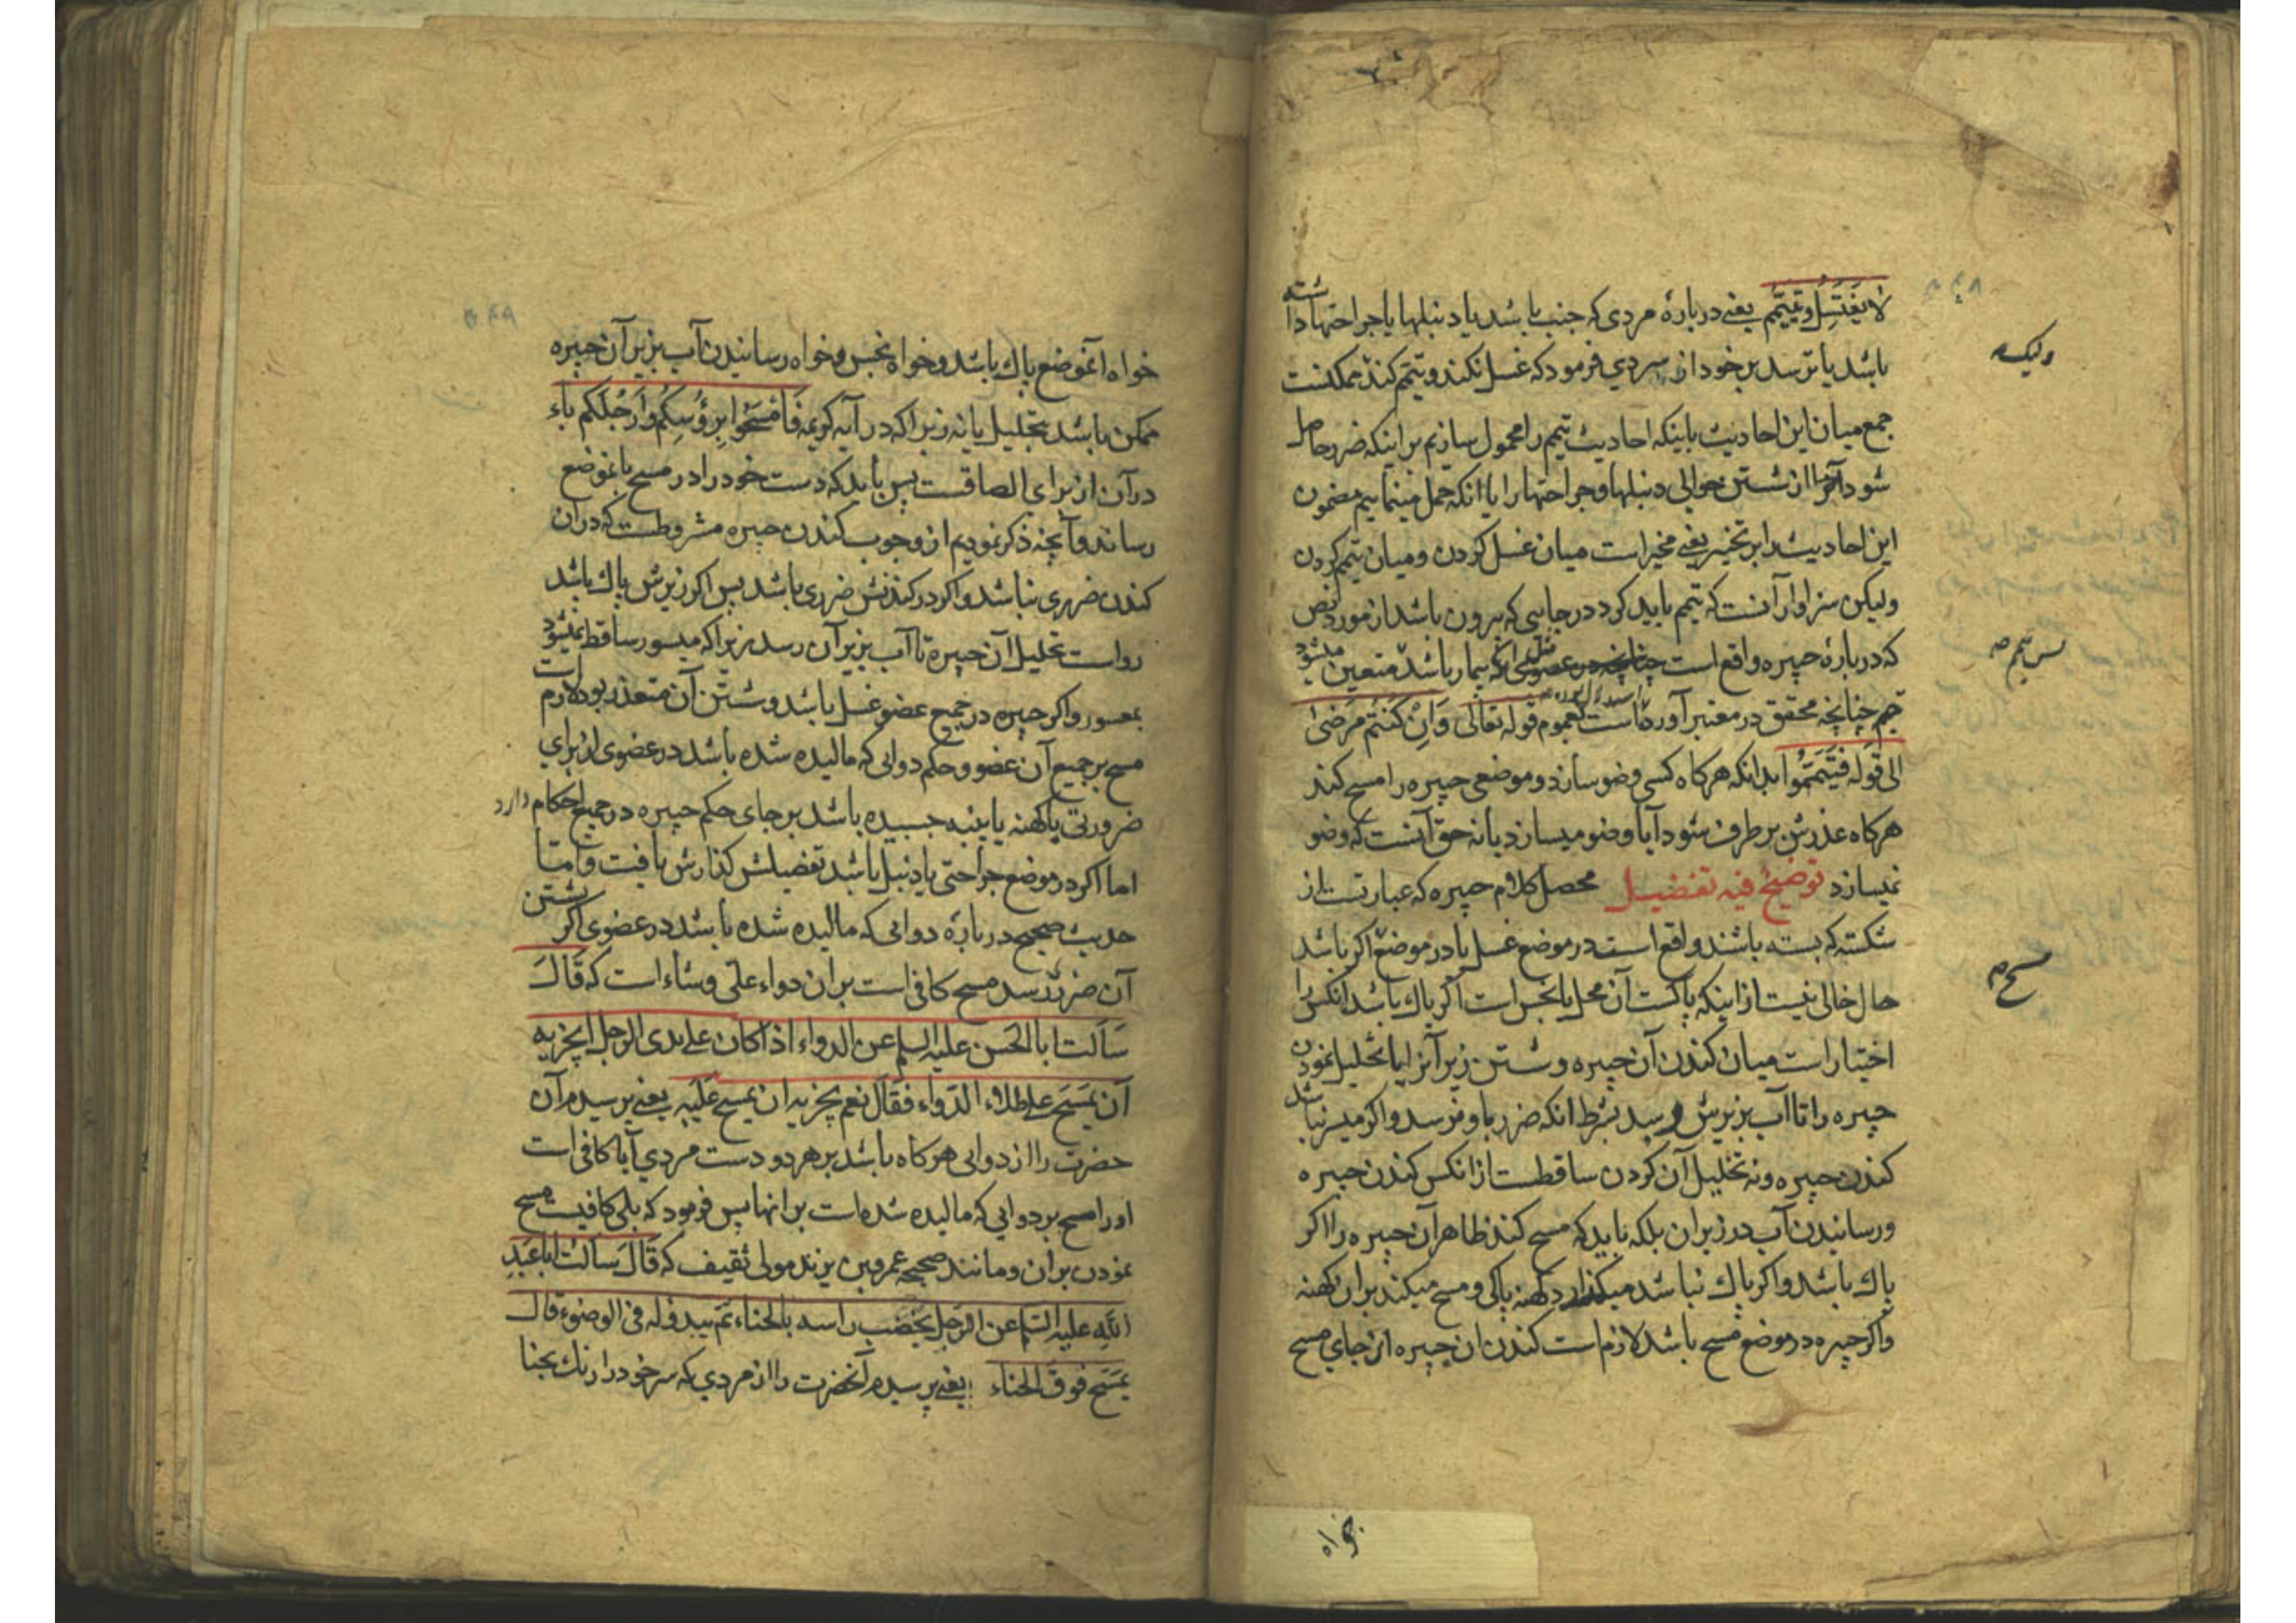 لا یغتسل و یتیمم یعنی دربارهٔ مردی که جنب باشد یا دنبلها یا جراحتها داشته
باشد یا ترسد بر خود از سردی فرمود که غسل نکند و تیمم کند ممکنست
ولیکن
جمع میان این احادیث باینکه احادیث تیمم را محمول سازیم بر اینکه ضرر حاصل
شود از شستن حوالی دنبلها و جراحتها را یا انکه حمل مینماییم مضمون
این احادیث را بر تخییر یعنی مخیر است میان غسل کردن و میان تیمم کردن
ولیکن سزاوار آنست که تیمم باید کرد در جایی که بیرون باشد از مورد نص
که دربارهٔ جبیره واقع است چنانچه در عضوی مثل انکه بیمار باشد متعین میشود
پس تیمم
تیمم چنانچه محقق در معتبر آورده است بعموم قوله تعالی وان کنتم مرضی
الی قوله فتیمموا بدانکه هرکاه کسی وضو سازد و موضعی جبیره را مسح کند
هرکاه عذرش بر طرف شود آیا وضو میسازد یا نه حق آنست که وضو
نمیسازد توضیح فیه تفضیل محصل کلام جبیره که عبارتست از
شکسته که بسته باشند واقع است در موضع غسل یا در موضع اکر باشد
مسح
حال خالی نیست از اینکه پاکست آن محل یا نجس است اکر پاک باشد انکس را
اختیار است میان کندن آن جبیره و شستن زیر آنرا یا تخلیل نمودن
جبیره را تا آب بزیرش رسد بشرط انکه ضرر باو نرسد و اکر میسر نباشد
کندن جبیره و نه تخلیل آن کردن ساقطست از انکس کندن جبیره
و رسانیدن آب در زیر ان بلکه باید که مسح کند ظاهر آن جبیره را اکر
پاک باشد و اکر پاک نباشد میکذارد کهنه پاکی و مسح میکند بران کهنه
و اکر جبیره در موضع مسح باشد لازم است کندن ان جبیره از جای مسح
خواه
خواه انموضع پاک باشد و خواه نجس و خواه رسانیدن آب بزیر آن جبیره
ممکن باشد بتخلیل یا نه زیرا که در آیه کریمه فامسحوا برؤسکم وارجلکم باء
در آن از برای الصاقست پس باید که دست خود را در مسح بانموضع
رساند و آنچه ذکر نمودیم از وجوب کندن جبیره مشروطست که در ان
کندن ضرری نباشد و اکر در کندنش ضرری باشد پس اکر زیرش پاک باشد
رواست تخلیل آن جبیره تا آب بزیر آن رسد زیرا که میسور ساقط نمیشود
بمعسور و اکر جبیره در جمیع عضو غسل باشد و شستن آن متعذر بود لازم است
مسح بر جمیع آن عضو و حکم دوایی که مالیده شده باشد در عضوی از برای
ضرورتی یا کهنه یا پنبه چسبیده باشد بر جای حکم جبیره در جمیع احکام دارد
اما اکر در موضع جراحتی یا دنبل باشد تفضیلش کذارش یافت و اما
حدیث صحیح دربارهٔ دوایی که مالیده شده باشد در عضوی اکر شستن
آن ضرر رسد مسح کافی است بران دواء علی وشاء است که قال
سالت ابا الحسن علیه السلم عن الدواء اذا کان علی یدی الرجل ایجزیه
آن یمسح علی طلاء الدواء فقال نعم یجزیه ان یمسح علیه یعنی پرسیدم آن
حضرت را از دوایی هرکاه باشد بر هر دو دست مردی آیا کافی است
اورا مسح بر دوایی که مالیده شده است بر انها پس فرمود که بلی کافیست مسح
نمودن بران و مانند صحیحه عمرو بن یزید مولی ثقیف که قال سالت ابا عبد
الله علیه السلم عن الرجل یخضب راسه بالحناء ثم یبدو له فی الوضوء قال
یمسح فوق الحناء یعنی پرسیدم آنحضرت را از مردی که سر خود را رنک بحنا